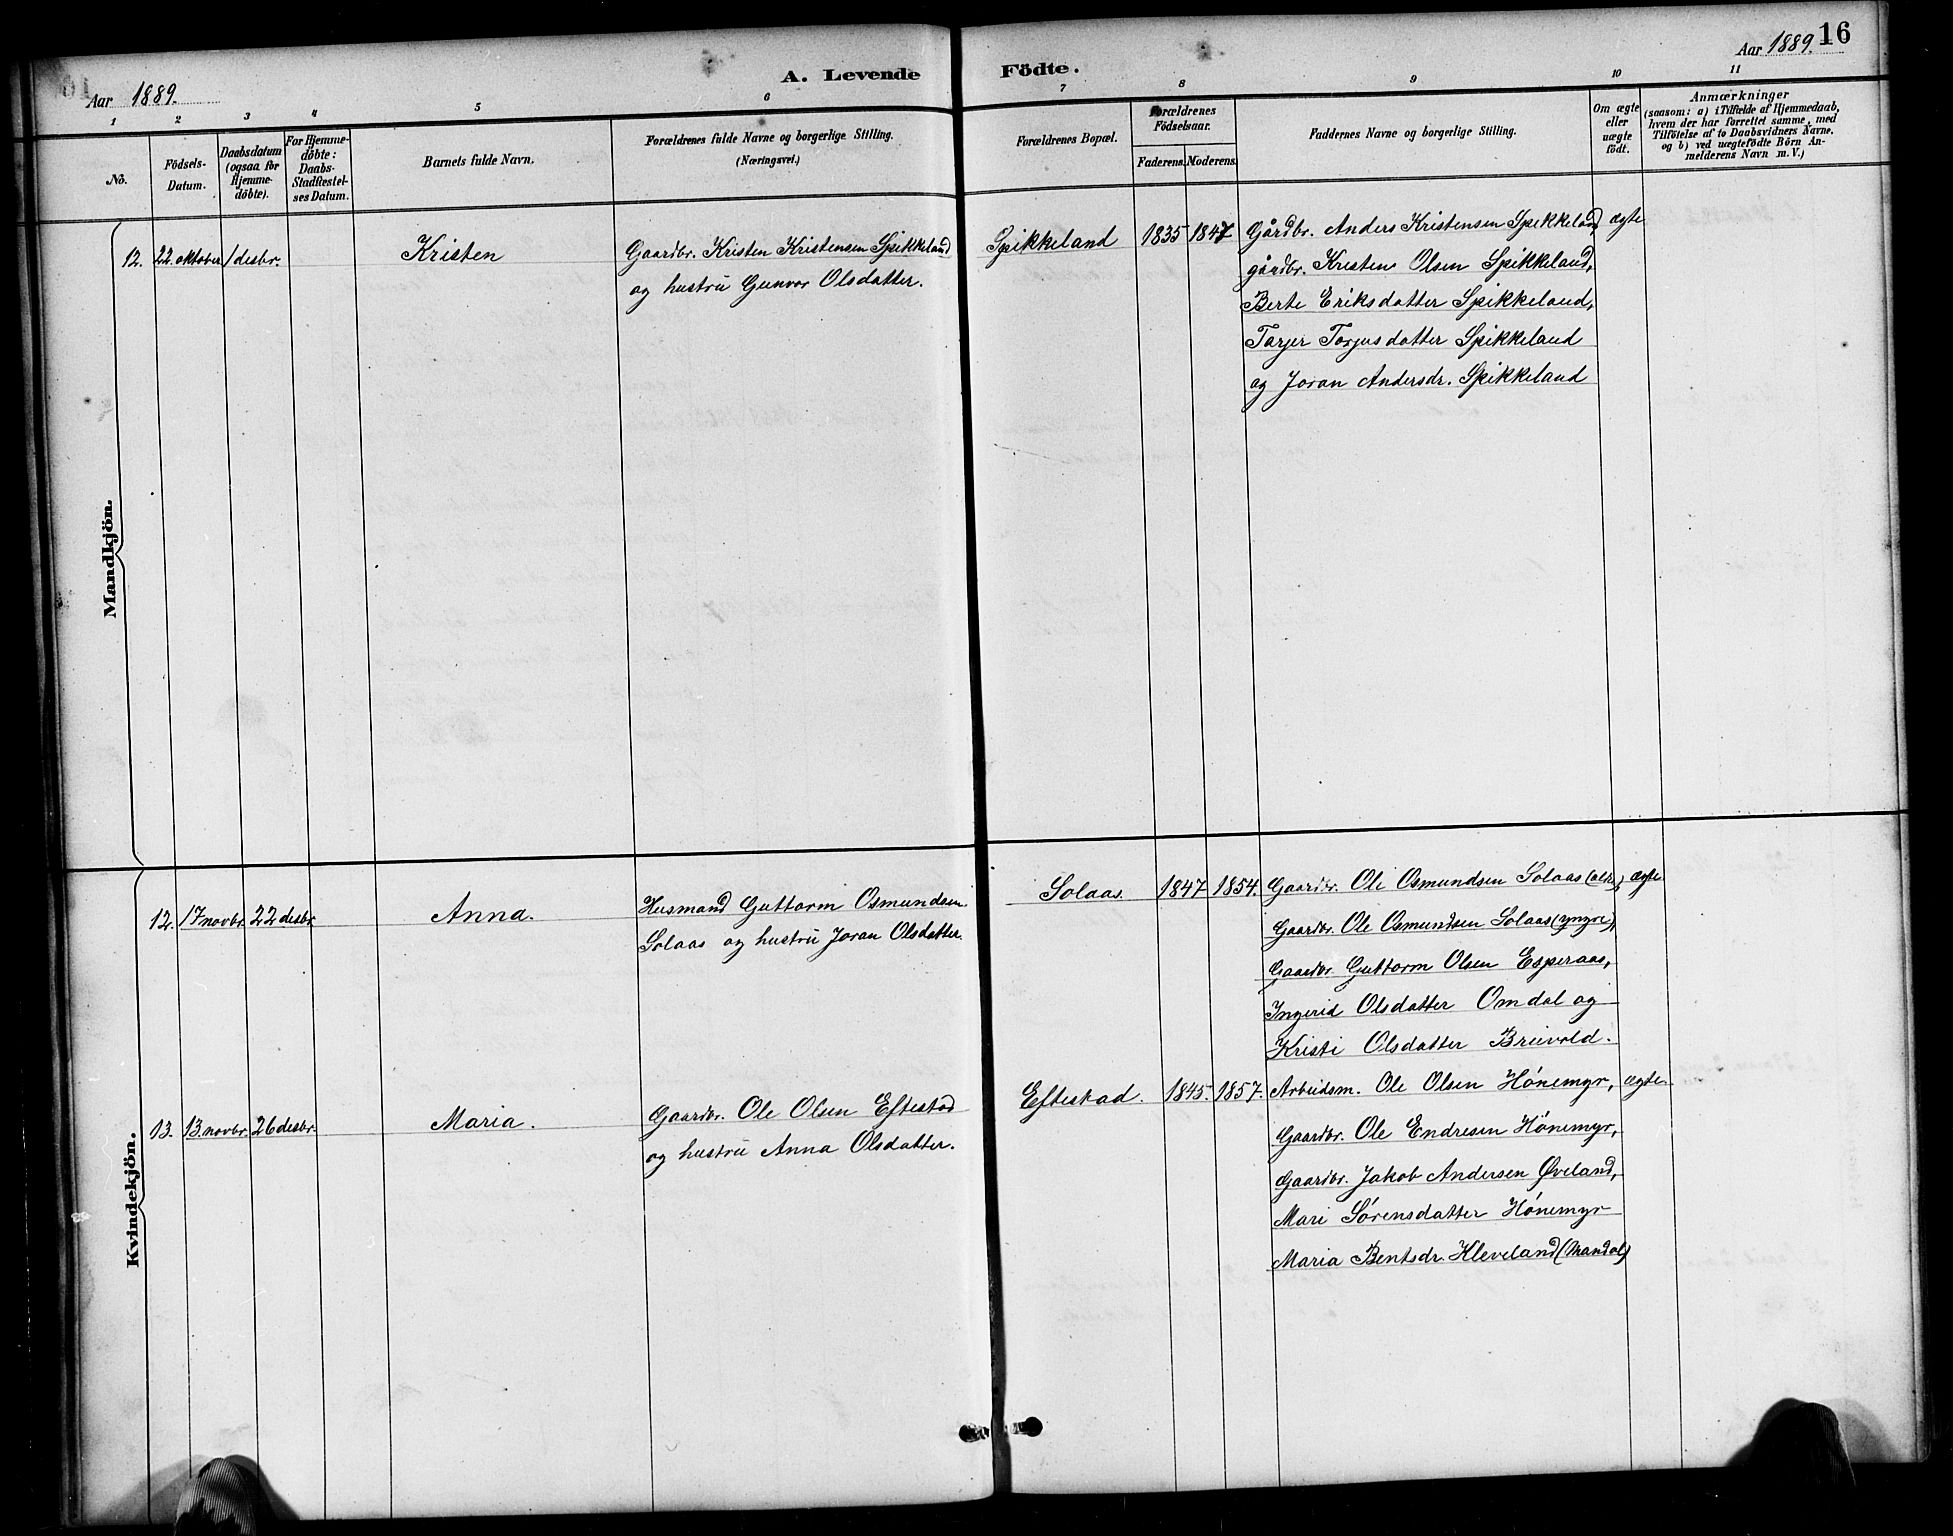 Aar 1889.
A. Levende Födte.
Aar 1889. 16
1 2 3 4 5 6 7 8 9 10 11
No.
Födsels-
Datum.
Daabsdatum
(ogsaa for
Hjemme-
döbte).
For Hjemme-
döbte:
Daabs-
Stadfæstel-
ses Datum.
Barnets fulde Navn.
Forældrenes fulde Navne og borgerlige Stilling.
(Næringsvei.)
Forældrenes Bopæl.
Forældrenes
Födselsaar.
Faderens. Moderens.
Faddernes Navne og borgerlige Stilling.
Om ægte
eller
uægte
født.
Anmærkninger
(saasom: a) i Tilfælde af Hjemmedaab,
hvem der har forrettet samme, med
Tilföielse af to Daabsvidners Navne,
og b) ved uægtefödte Börn An-
melderens Navn m. V.)
Mandkjön.
12. 22. oktober 1 desbr. Kristen
Gaardbr. Kristen Kristensen Spikkeland
og hustru Gunvor Olsdatter.
Spikkeland 1835 1847
Gårdbr. Anders Kristensen Spikkeland, ægte
gårdbr. Kristen Olsen Spikkeland,
Berte Eriksdatter Spikkeland,
Tarjer Torjusdatter Spikkeland
og Joran Andersdr. Spikkeland
Kvindekjön.
12. 17 novbr. 22 desbr. Anna.
Husmand Guttorm Osmundsen
Solaas og hustru Joran Olsdatter.
Solaas. 1847 1854.
Gaardbr. Ole Osmundsen Solaas ægte
Gaardbr. Ole Osmundsen Solaas (yngre),
Gaardbr. Guttorm Olsen Esperaas,
Ingerid Olsdatter Omdal og
Kristi Olsdatter Breivold.
13. 13. novbr. 26 desbr. Maria.
Gaardbr. Ole Olsen Eftestad
og hustru Anna Olsdatter.
Eftestad. 1845. 1857.
Arbeidsm. Ole Olsen Hónemyr, ægte.
Gaardbr. Ole Endresen Hónemyr,
Gaardbr. Jakob Andersen Øveland,
Mari Sórensdatter Hónemyr
Maria Bentsdr. Kleveland (Mandal)